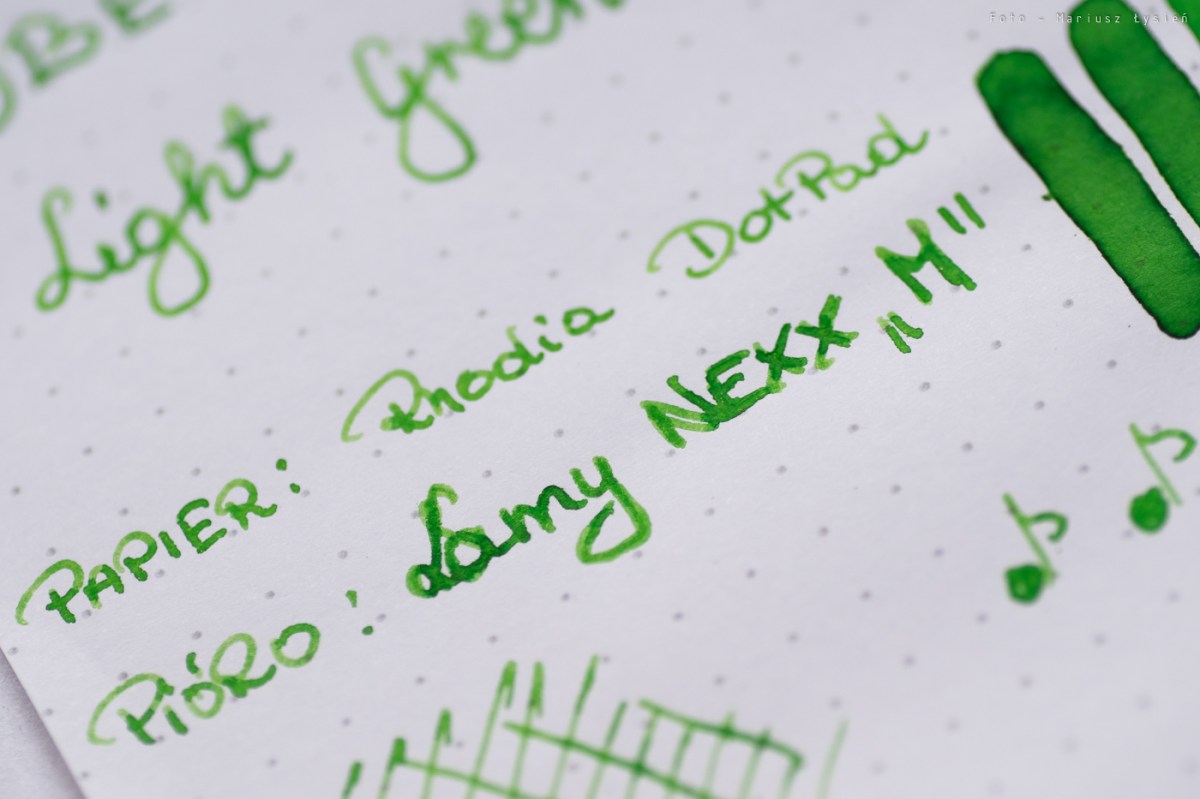 Foto - Mariusz Łysień
Light Green
PAPIER: Rhodia DotPad
PIÓRO: Lamy NEXX „M"